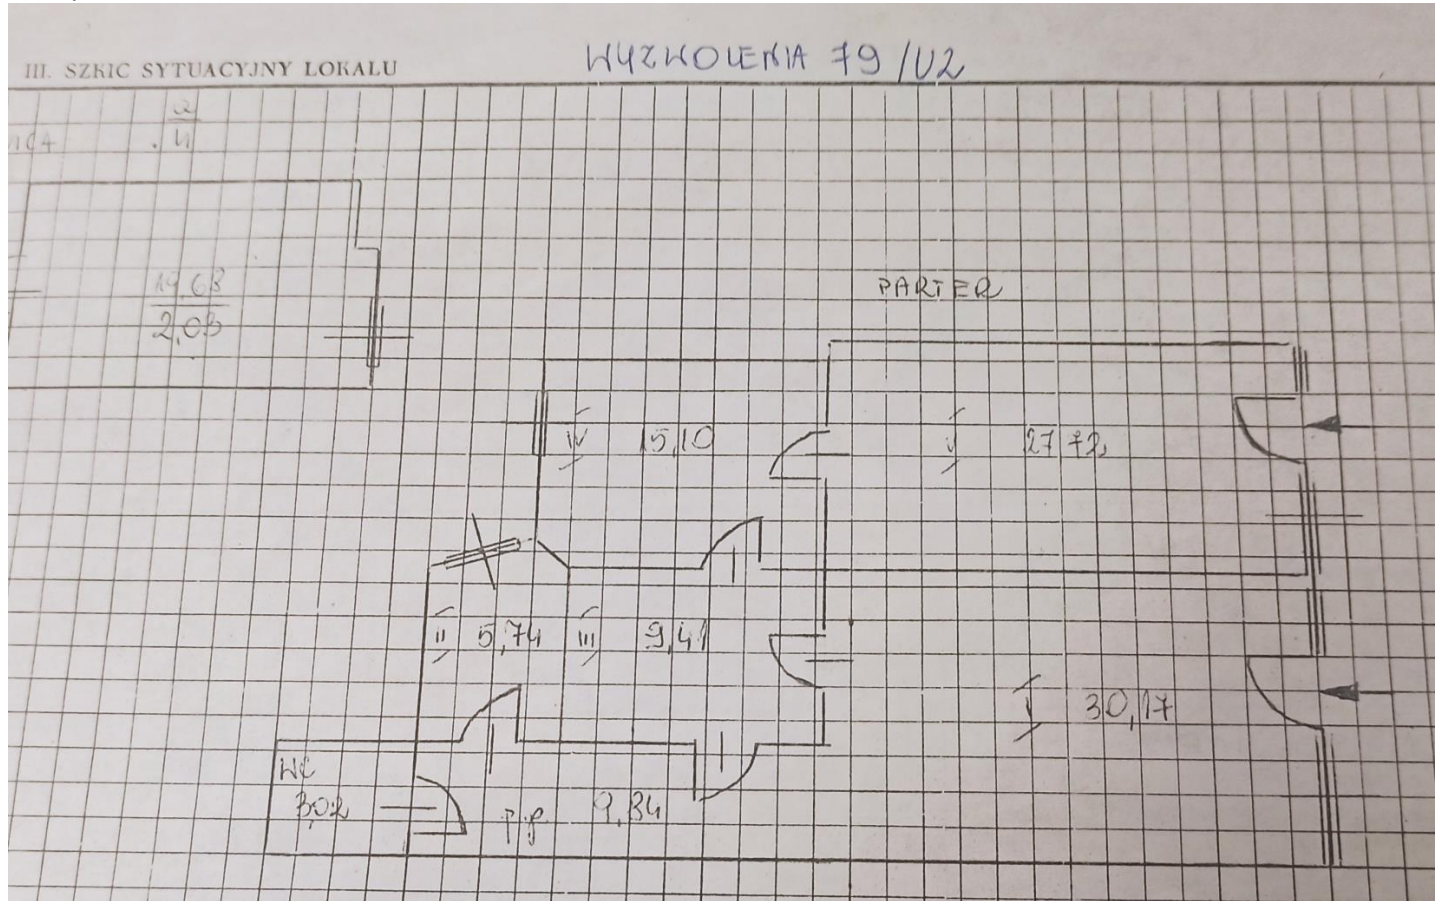 III. SZKIC SYTUACYJNY LOKALU
WYZWOLENIA 79/U2
19,63
2,03
PARTER
IV 15,10
V 27,72
II 5,74
III 9,41
I 30,17
WC
3,02
p.p 9,34